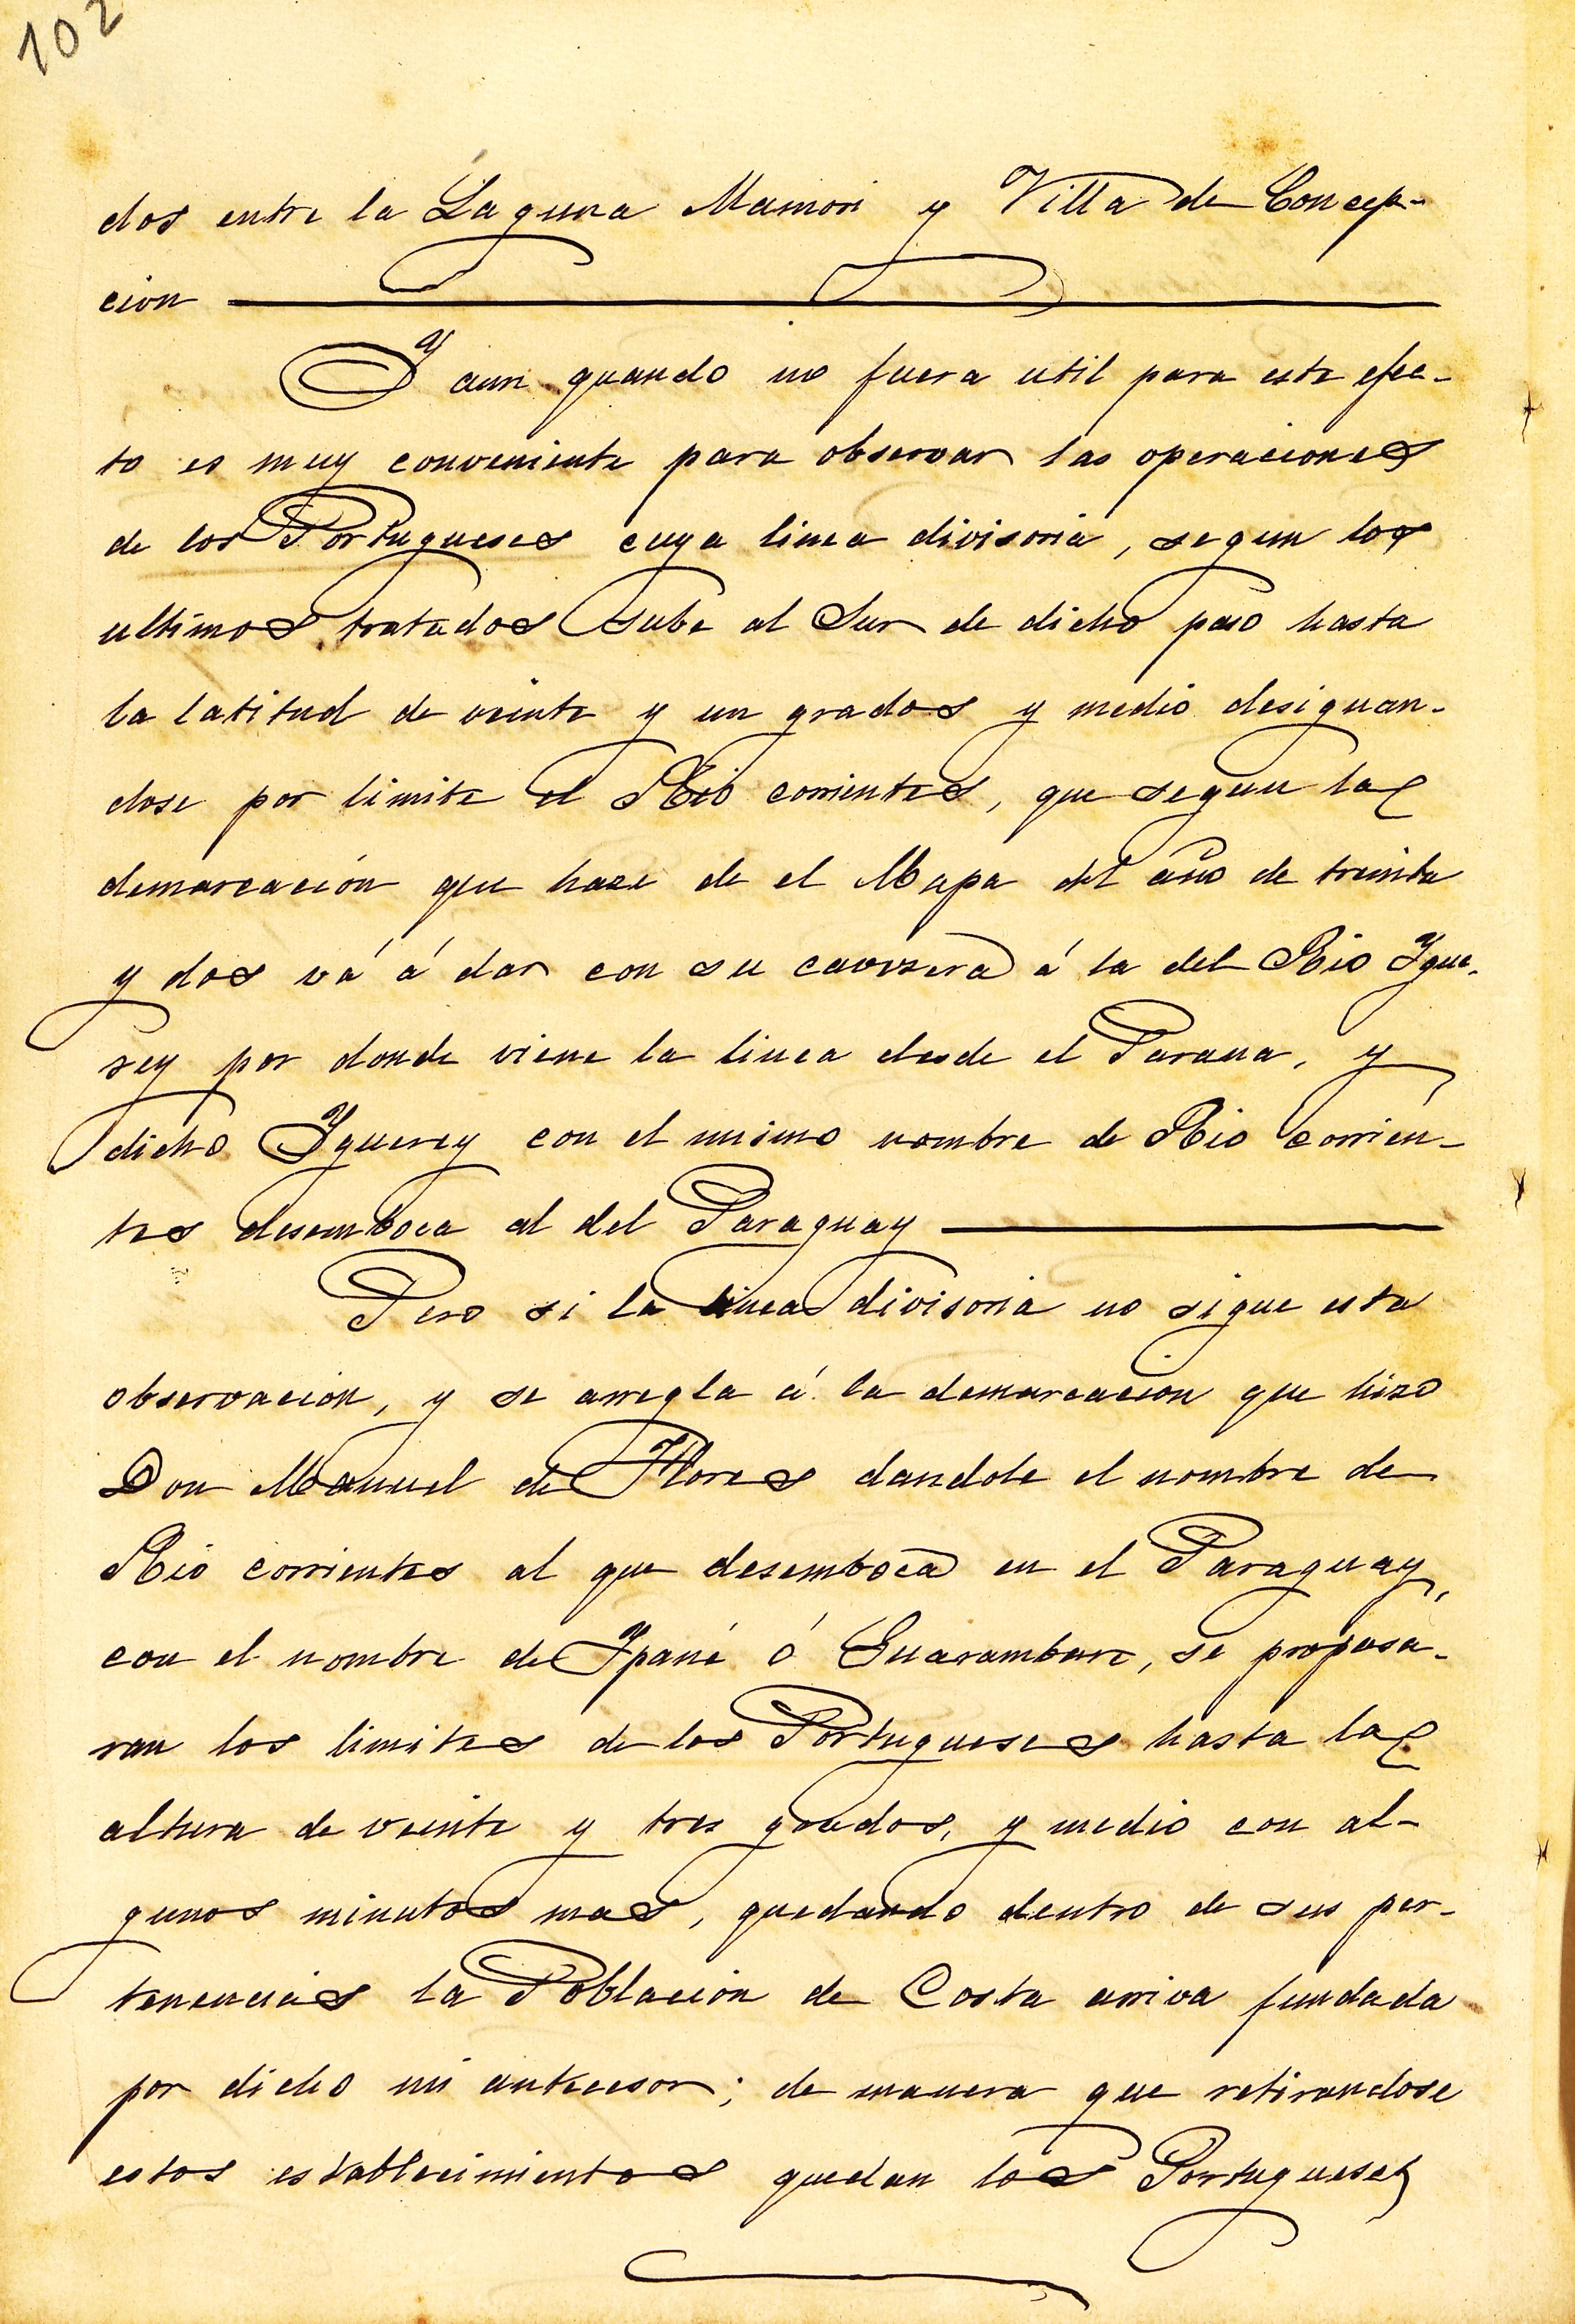 102
dos entre la Laguna Mamori y Villa de Concep-
cion
Y aun quando no fuera util para este efec-
to es muy conveniente para observar las operaciones
de los Portugueses cuya linea divisoria, segun los
ultimos tratados sube al Sur de dicho paso hasta
la latitud de veinte y un grados y medio designan-
dose por limite el Rio corrientes, que segun la
demarcación que haze de el Mapa del año de treinta
y dos vá á dar con su cavezera á la del Rio Ygue-
rey por donde viene la linea desde el Parana, y
dicho Yguerey con el mismo nombre de Rio corrien-
tes desemboca al del Paraguay
Pero si la linea divisoria no sigue esta
observacion, y se arregla á la demarcacion que hizo
Don Manuel de Flores dandole el nombre de
Rio corrientes al que desemboca en el Paraguay,
con el nombre de Ypané ó Guarambare, se propasa-
ran los limites de los Portugueses hasta la
altura de veinte y tres grados, y medio con al-
gunos minutos mas, quedando dentro de sus per-
tenencias la Poblacion de Costa arriva fundada
por dicho mi antecesor; de manera que retirandose
estos establecimientos quedan los Portugueses